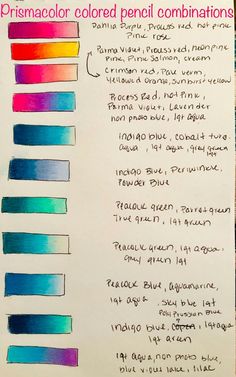 Prismacolor colored pencil combinations
Dahlia Purple, Process red, hot pink
Pink rose
Parma Violet, Process red, neon pink
Pink, Pink Salmon, cream
Crimson red, Pale verm,
Yellowed orange, sunburst yellow
Process Red, hot Pink,
Parma Violet, Lavender
non photo blue, lgt aqua
Indigo blue, cobalt turq.
lgt aqua, grey green
lgt
Indigo Blue, Periwinkle,
Powder Blue
Peacock green, Parrot green
True green, lgt green
Peacock green, lgt aqua,
Grey green lgt
Peacock Blue, aquamarine,
lgt aqua, sky blue lgt
Prussian Blue
Indigo blue, lgt aqua
lgt green
lgt aqua, non photo blue,
blue violet lake, lilac